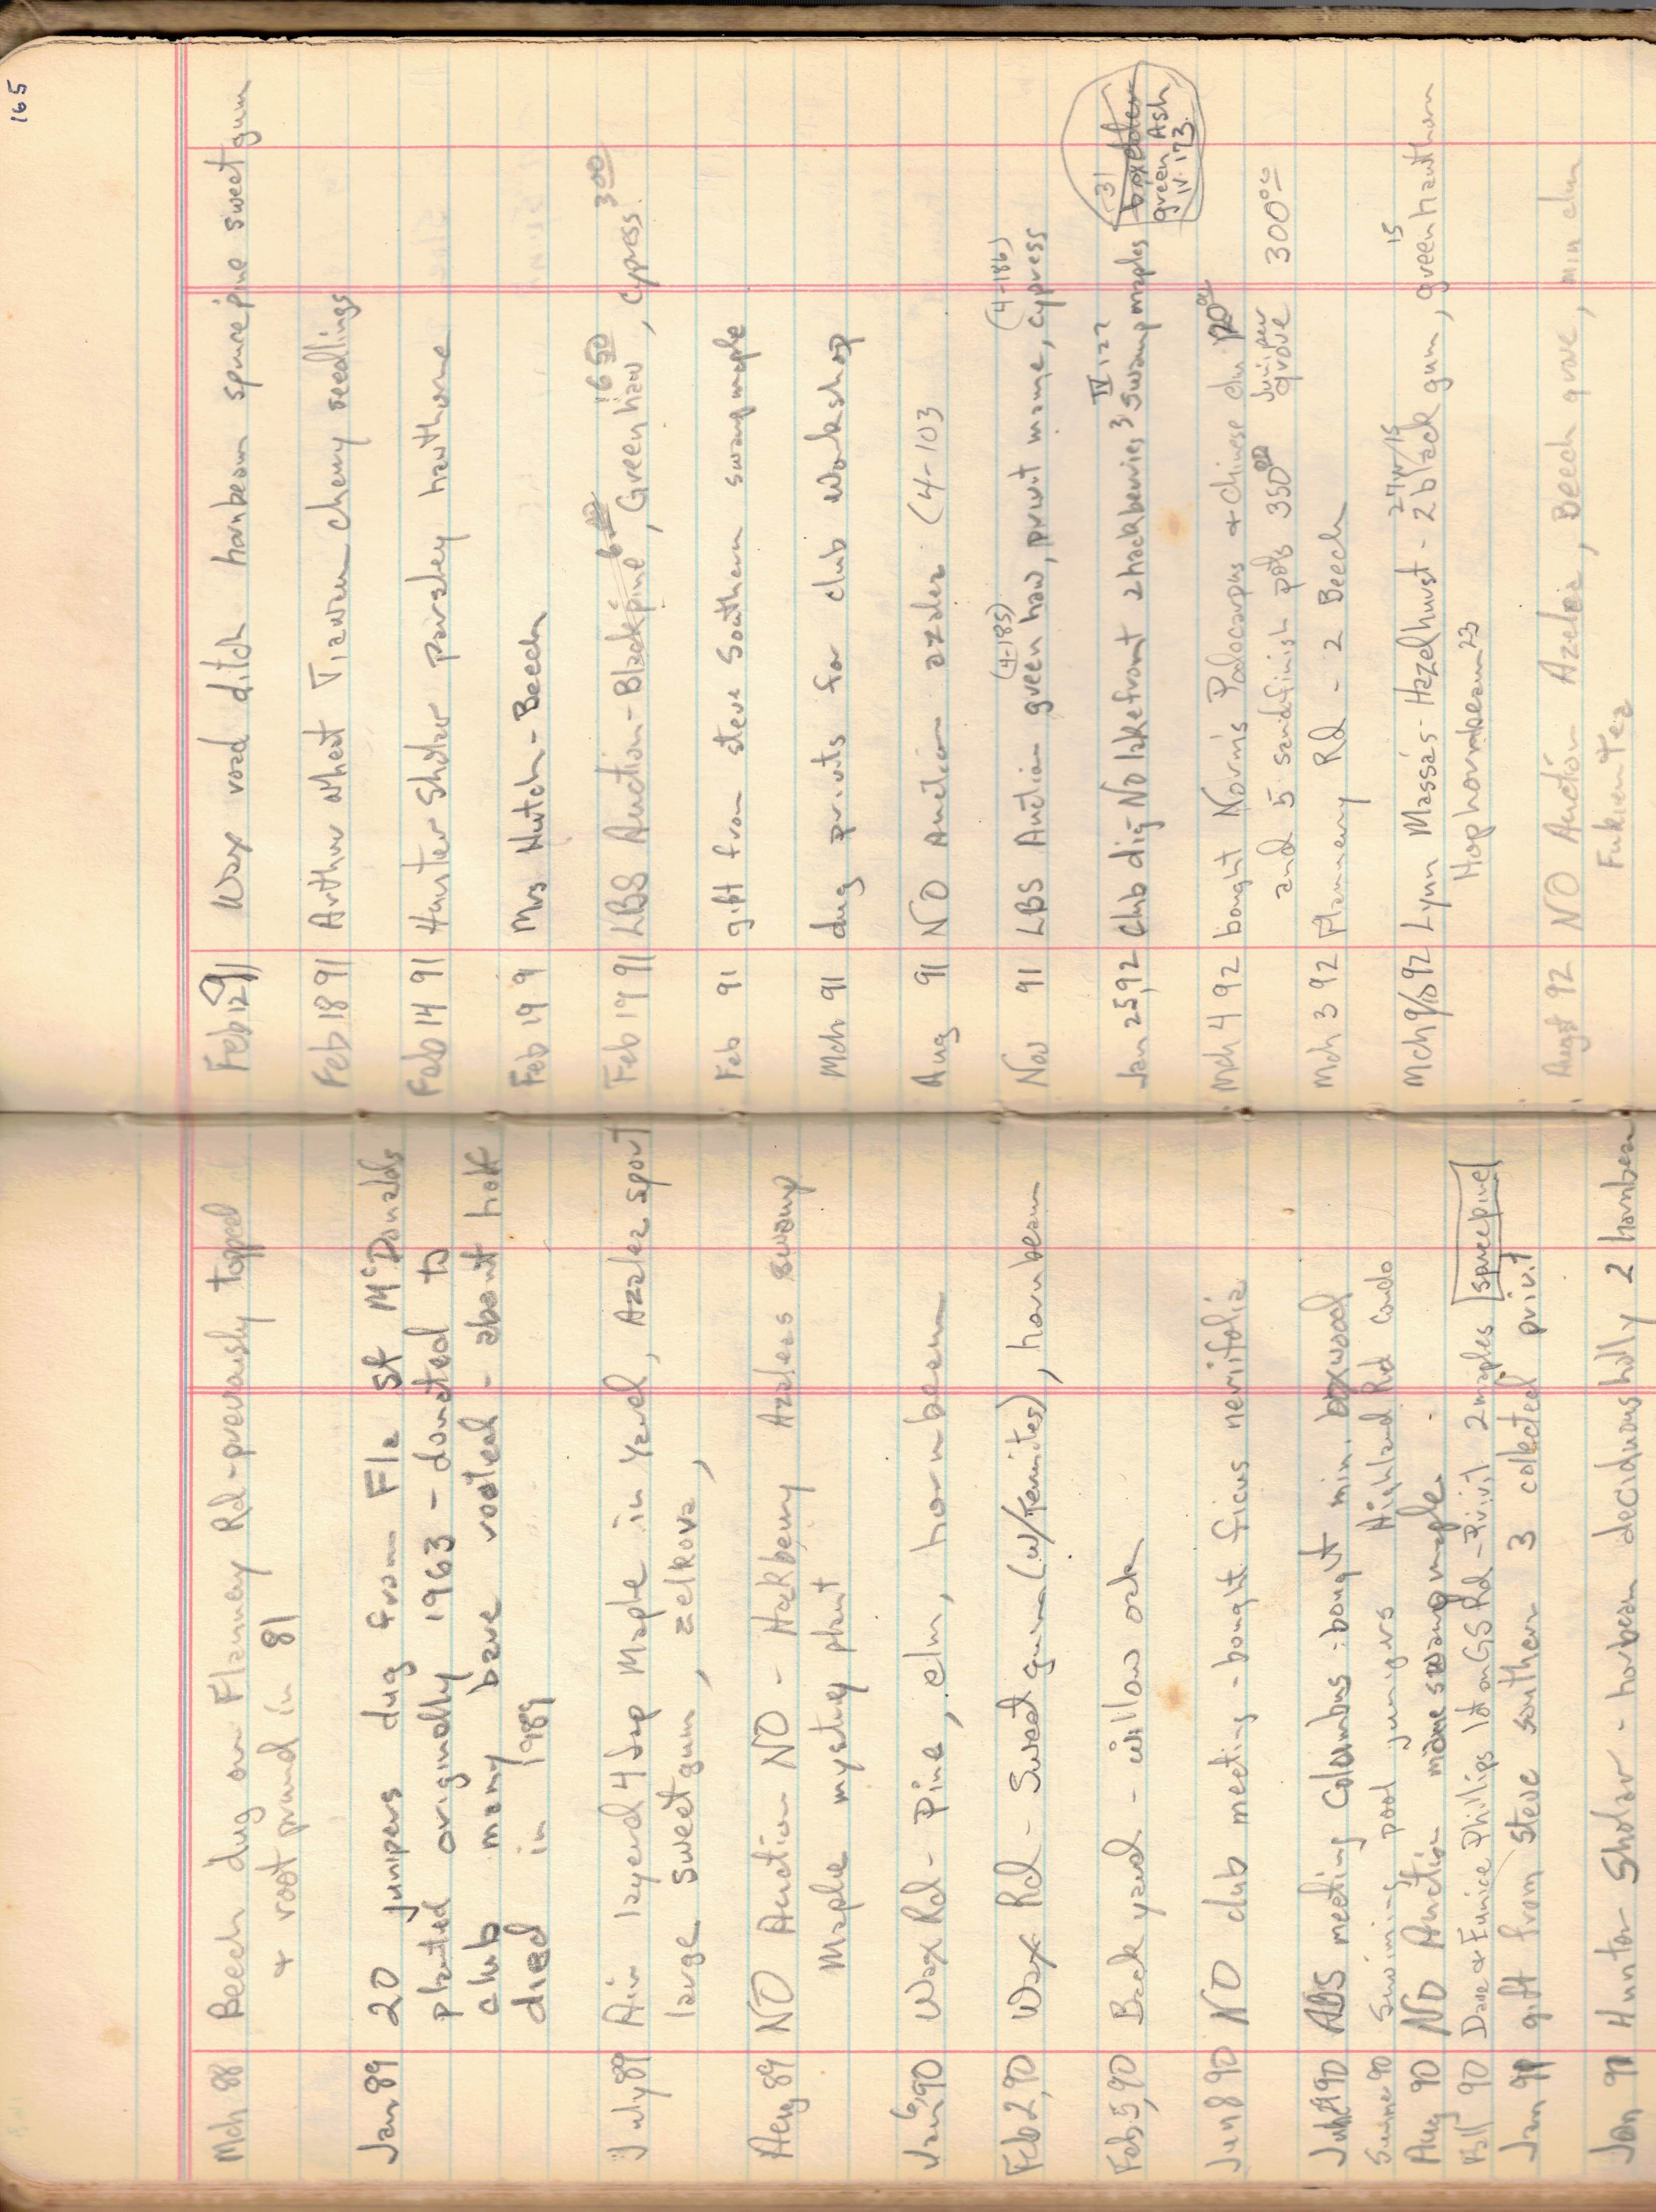 Mch 88 Beech dug on Flannery Rd - previously topped
& root prund in 81
Jan 89 20 junipers dug from Fla St McDonalds
planted originally 1963 - donated to
club many bare rooted - about half
died in 1989
July 89 Air layered 4 Jap Maple in Yard, Azalea sport
large sweetgum, zelkova,
Aug 89 NO Auction NO - Hackberry Azaleas swamp
Maple mystery plant
Jan 6, 90 Wax Rd - Pine, elm, hornbeam
Feb 2, 90 Wax Rd - Sweet gum (w/Termites), hornbeam
Feb 5, 90 Back yard - willow oak
Jun 8 90 NO club meeting - bought ficus neriifolia
90 ABS meeting Columbus - bought min. boxwood
Summer 90 Swiming pool junipers Highland Rd Condo
Aug 90 NO Auction mame swamp maple
Fall 90 Dave & Eunice Phillips lot on GS Rd - Privit 2 maples sprucepine
Jan 91 gift from Steve Southern 3 collected privit
Jan 91 Hunter Sholar - horbeam deciduous holly 2 hornbeam
165
Feb 12 91 Wax road ditch hornbeam sprucepine sweetgum
Feb 18 91 Arthur Wheat Tiawan cherry seedlings
Feb 14 91 Hunter Sholar parsley hawthorne
Feb 19 9 Mrs Hutch - Beech
Feb 19 91 LBS Auction - Blackpine, Green haw 16 50, cypress 3 00
Feb 91 gift from steve Southern swamp maple
Mch 91 dug privits for club Workshop
Aug 91 NO Auction azalea (4-103
(4-185) (4-186)
Nov 91 LBS Auction green haw, privit mame, cypress
IV 122
Jan 25, 92 Club dig NO lakefront 2 hackberries 3 Swamp maples
31
boxelder
green Ash
IV 173
Mch 4 92 bought Norm's Podocarpus & Chinese elm 120 00
and 5 sandfinish pots 350 00 Juniper grove 300 00
Mch 3 92 Flannery Rd - 2 Beech
15
Mch 9/10 92 Lynn Massa's - Hazelhurst - 2 black gum, green hawthorn
Hophornbeam 23
Augst 92 NO Auction Azalea, Beech grove, min elm
Fukien Tea